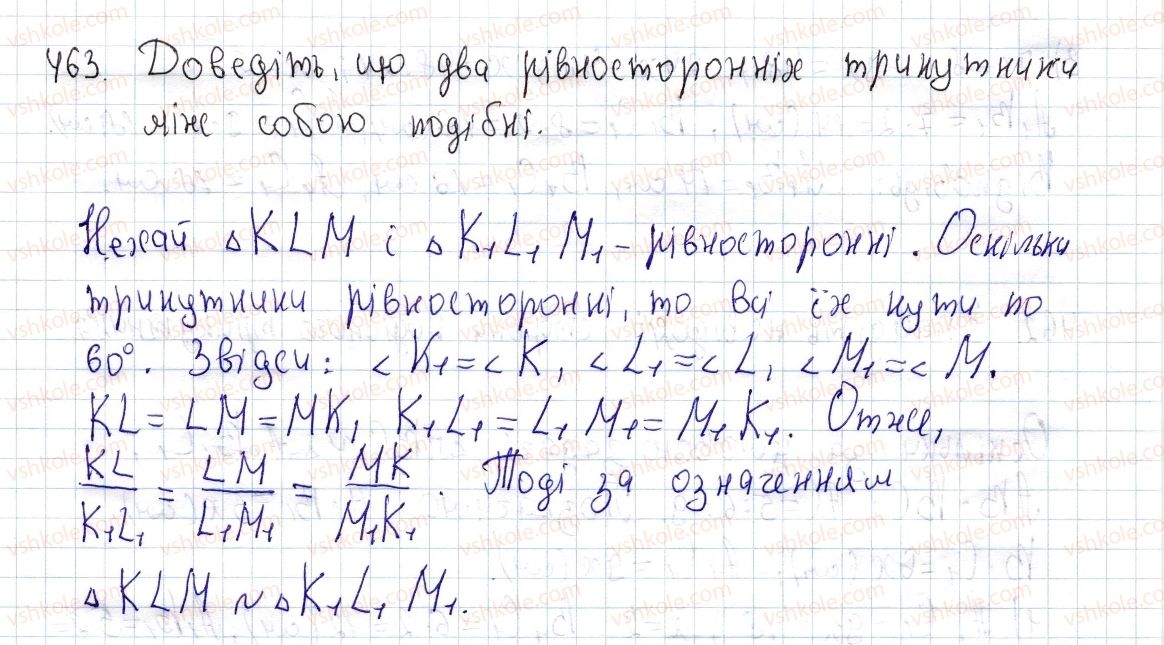 463. Доведіть, що два рівносторонніх трикутники
між собою подібні.
Нехай △KLM і △K₁L₁M₁ – рівносторонні. Оскільки
трикутники рівносторонні, то всі їх кути по
60°. Звідси: <K₁=<K, <L₁=<L, <M₁=<M.
KL=LM=MK, K₁L₁=L₁M₁=M₁K₁. Отже,
KL/K₁L₁ = LM/L₁M₁ = MK/M₁K₁. Тоді за означенням
△KLM ~ △K₁L₁M₁.